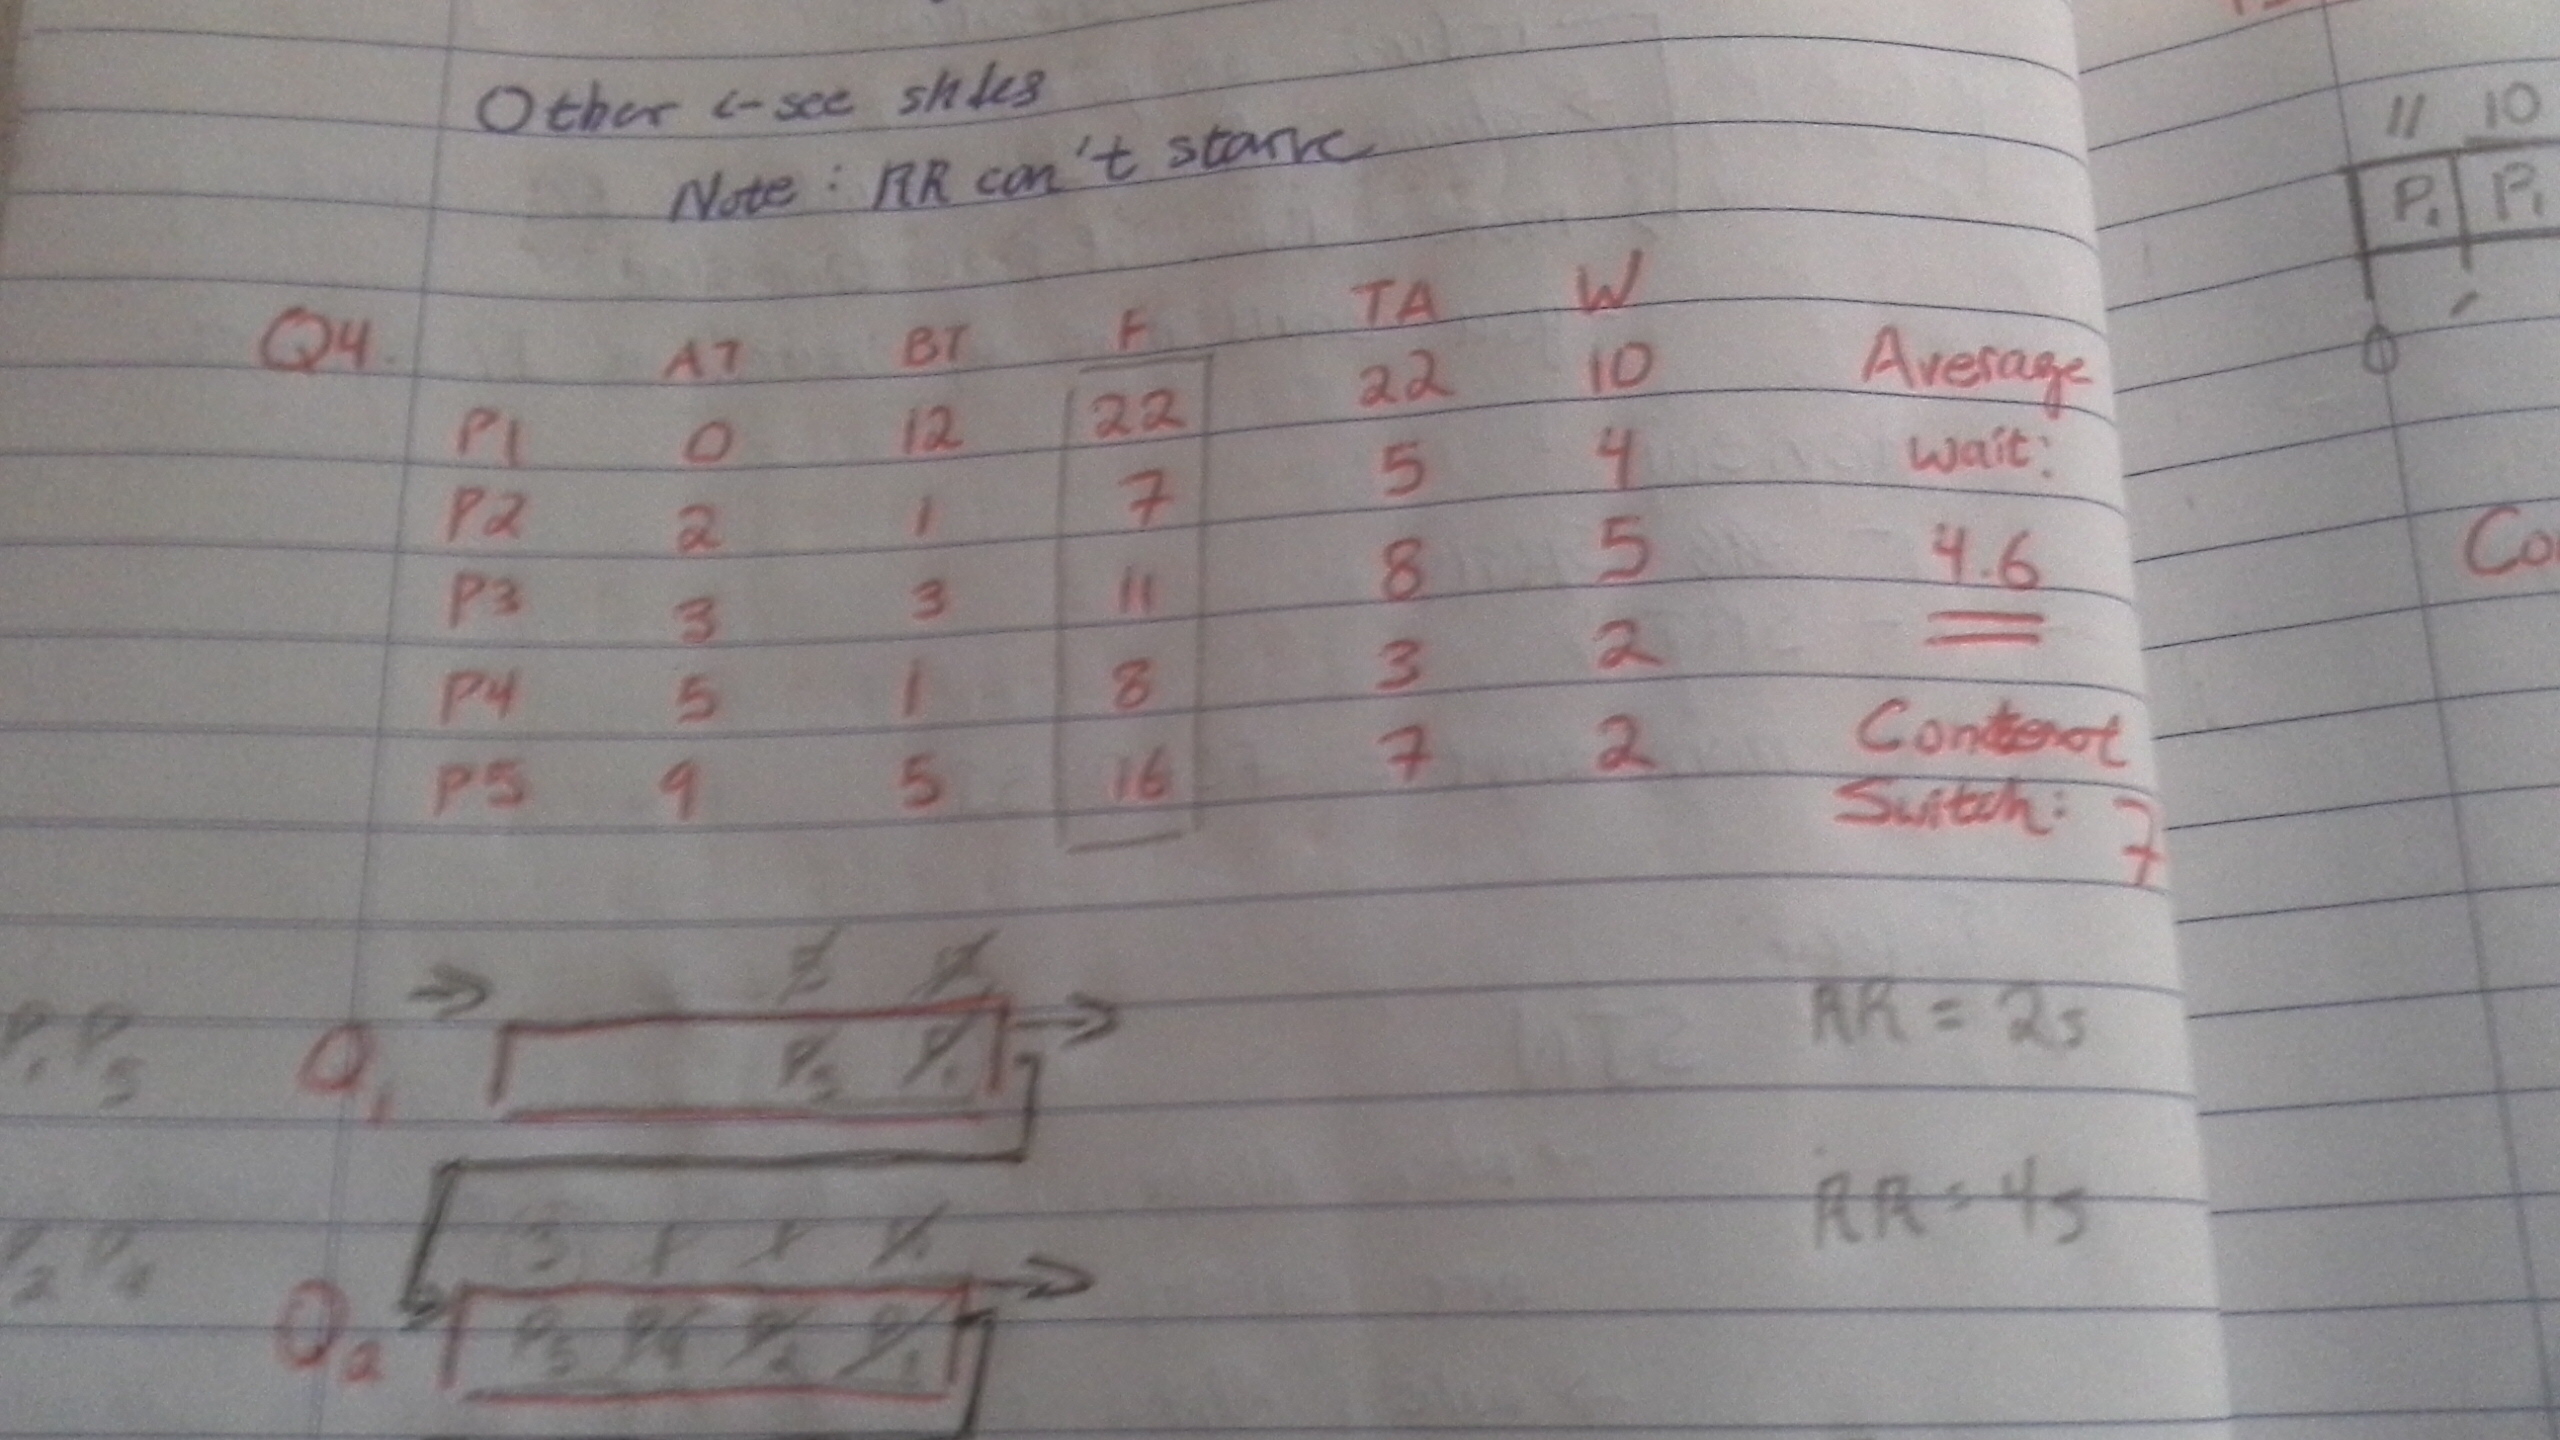 Other see slides
Note: RR can't starve
Q4. AT BT F TA W
P1 0 12 22 22 10
P2 2 1 7 5 4
P3 3 3 11 8 5
P4 5 1 8 3 2
P5 9 5 16 7 2
Average
wait:
4.6
Context
Switch: 7
P1 P3
Q1
P3 P1
RR = 2s
P2 P4
Q2
P5 P4 P2 P1
RR = 4s
11 10
P1 P1
0